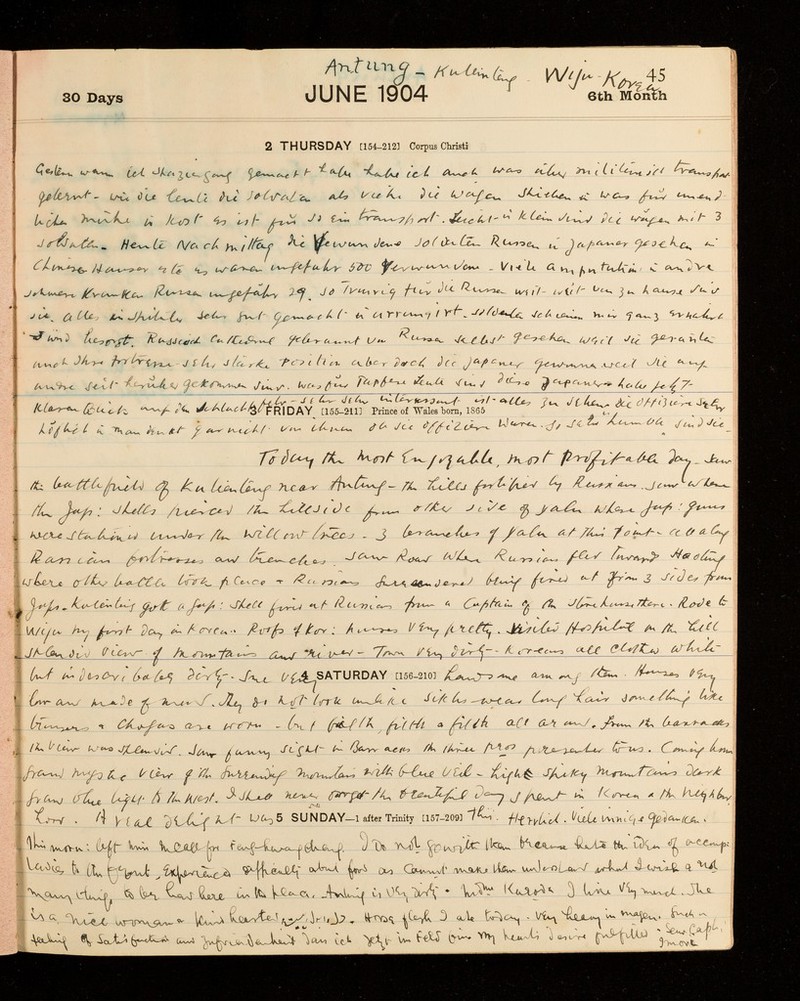 Antung - Kuleinteng - Wiju - Korea
45
30 Days JUNE 1904 6th Month
2 THURSDAY [154-212] Corpus Christi
Gestern wann ich Spaziergang gemacht habe habe ich auch was über militärisch transport
gelernt - wie die leute die soldaten als viehe die wagen ziehen u was für unend
licher mühe u Kost es ist für so ein transport. Leicht u klein sind die wägen mit 3
soldaten. Heute Nachmittag die Verwundene soldaten Russen u Japaner gesehen in
Chinesen Hauser es waren ungefahr 500 Verwunden - Viele amputation u andre
schwere Kranken Russen ungefähr 29. so traurig für die Russen weit weit von zu hause sind
sie. alles in Spitäler sehr gut gemacht u arrangirt. soldaten scheinen mir ganz ernährt
u sind besorgt. Russen selbst gesehen weil sie
auch ihre sehr starke Position aber doch die Japaner gewonnen weil sie auf
andre seit herüber gekommen sind. was für Tapfere Leute sind diese Japaner habe jetzt
klaren blick auf die Schlacht sehr sehr interessant ist alles zu sehen die Offiziere sehr
3 FRIDAY [155-211] Prince of Wales born, 1865
höflich u man denkt gar nicht von ihnen ob sie Offiziere waren. so sehr "humble" sind sie -
Today the most Enjoyable, most Profitable day - saw
the battlefield of Kulienteng near Antung - the hills fortified by Russians. saw where
the Jap: shells pierced the hillside from other side of yalu where Jap: guns
were stationed under the willow trees. 3 branches of yalu at this point -
Russian fortresses and trenches. saw Road where Russian fled towards
where other battle took place & Russians surrendered being fired at from 3 sides from
Japs. Kulenting got a Jap: shell fired at Russians from a Captain of the storehouse there. Rode to
Wiju my first day in Korea. Roofs of Kor: houses very pretty. Visited Hospital on the hill
splendid view of mountains and river - Town very dirty - Koreans all clothed white
but indescribably dirty - saw very handsome among them. Houses very
4 SATURDAY [156-210]
low and made of mud. They do not look unlike sikhs - wear long hair something like
& Chogas are worn - but filth, filth & filth all around. From the barracks
the view was splendid. saw funny sight in Barracks the three presented to us. Coming home
grand mystic view of the surrounding mountains with blue veil - high spiky mountains dark
from blue light to the west. I shall never forget the beautiful day spent in Korea & the neighbor
hood. A real delight was this. Herrlich. Viele innige gedanken.
5 SUNDAY—1 after Trinity [157-209]
This morn: left Miss McCaul for Fenghwangchang. I do not go with them because hate the idea of accomp
ladies to the front. Experienced difficulty about food as cannot make them understand what I wish & not
many things to be had here in this place. Antung is very dirty. Mdm Kuroda I like very much. She
is a nice woman & kind hearted. Horse flesh I ate today - very heavy in magen. Such a
feeling of satisfaction and Zufriedenheit dass ich jetzt im Feld bin my hearts desire fulfilled -